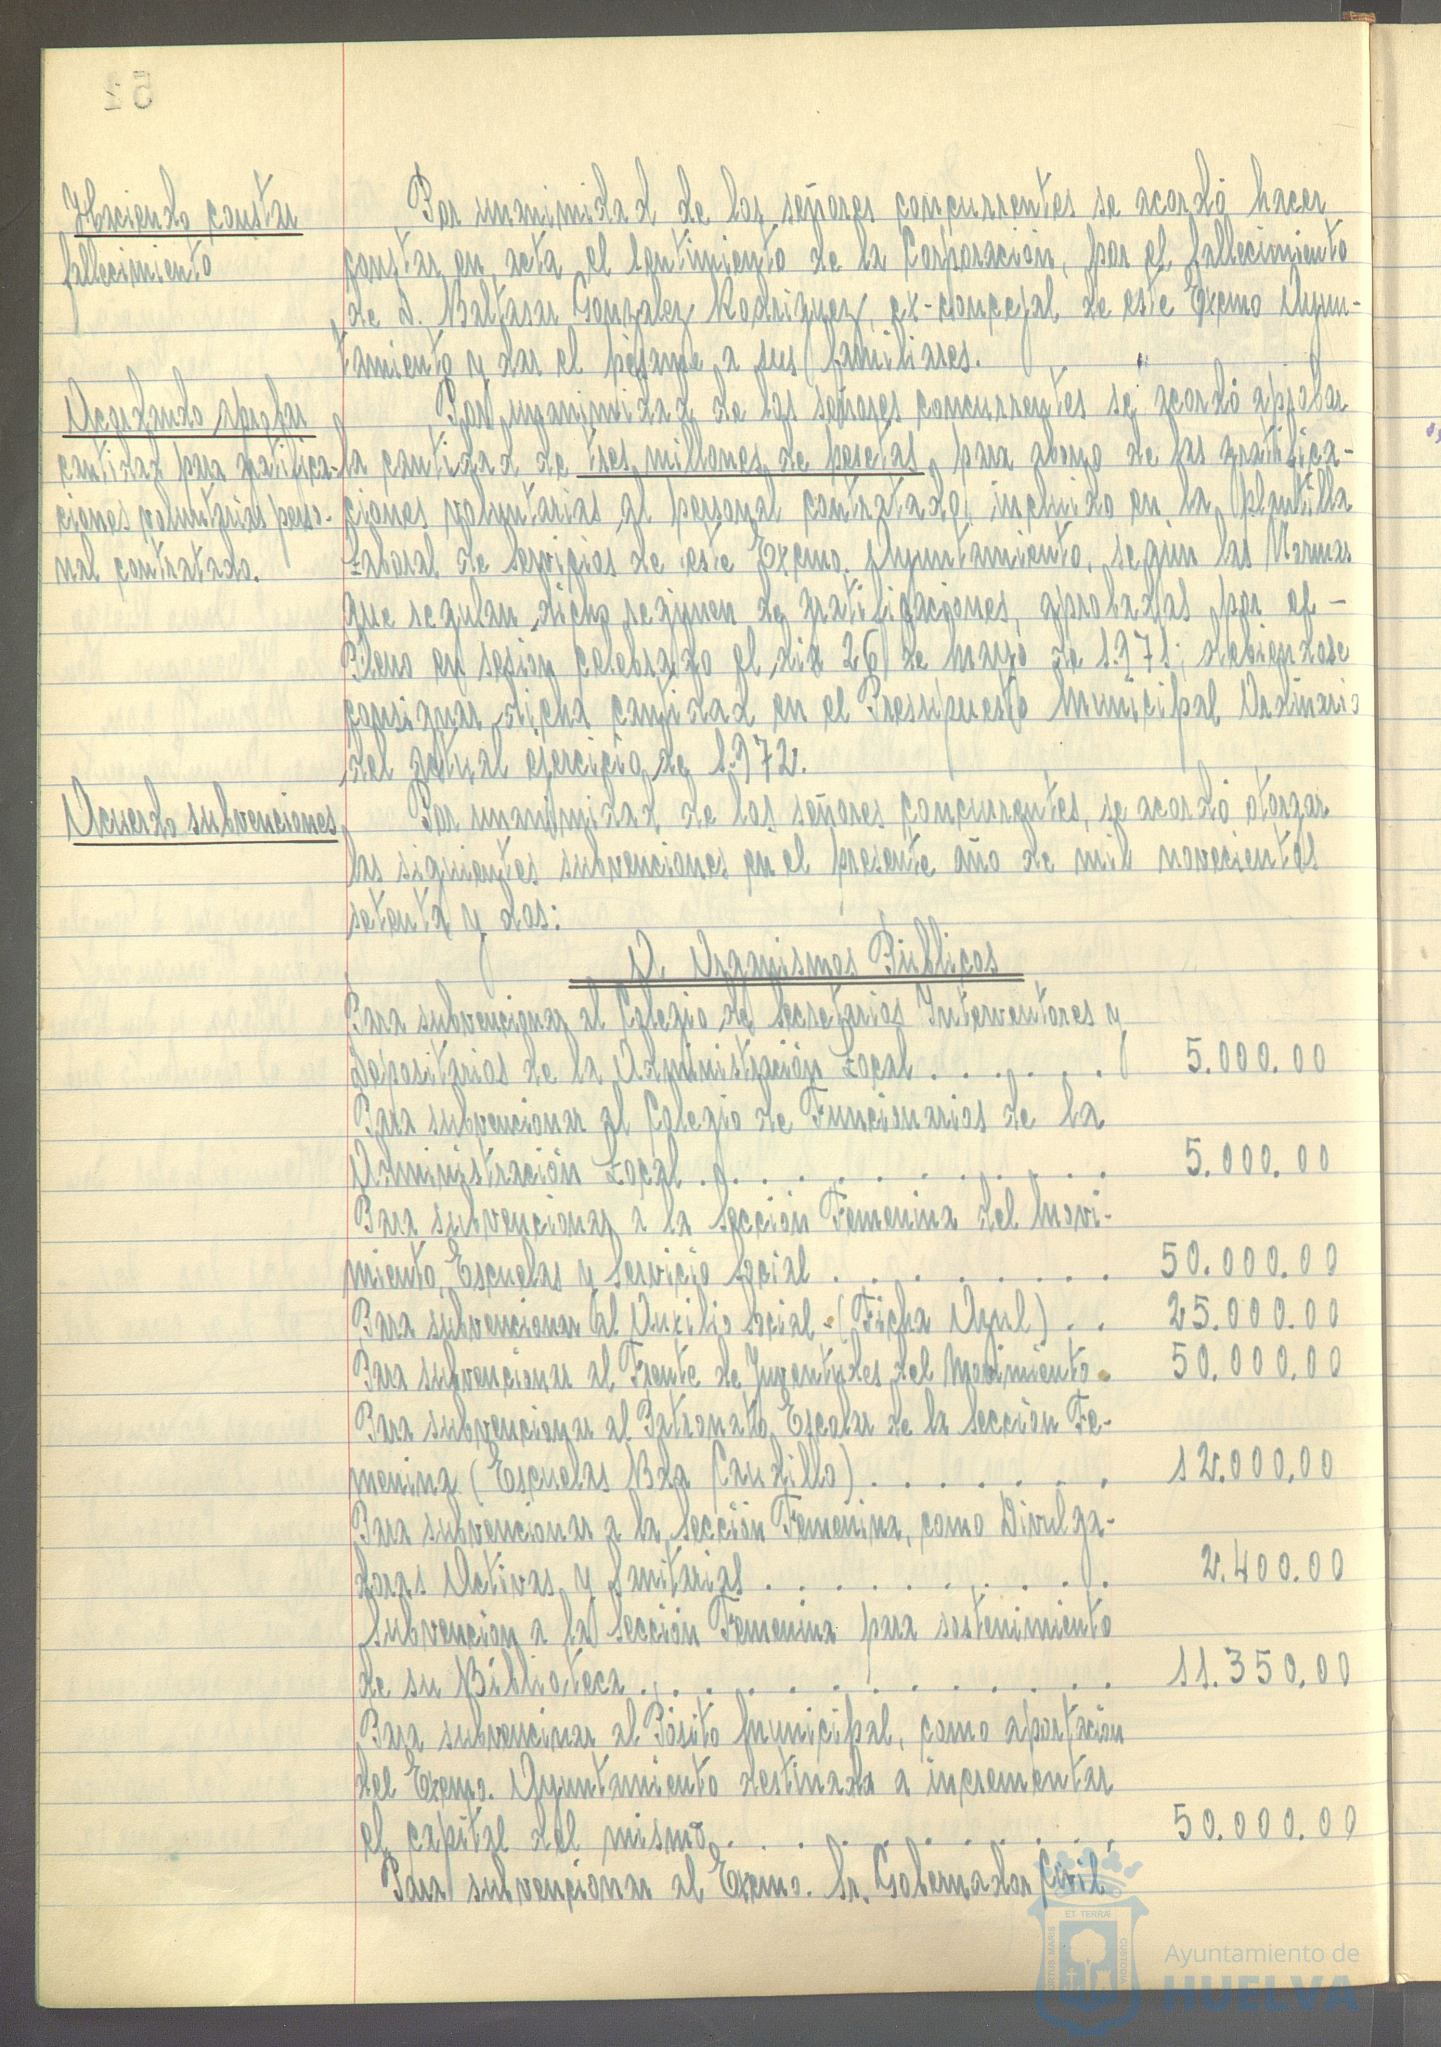 Haciendo constar
fallecimiento
Por unanimidad de los señores concurrentes se acordó hacer
constar en acta el sentimiento de la Corporación, por el fallecimiento
de D. Baltasar Gonzalez Rodriguez, ex-concejal de este Excmo Ayun-
tamiento y dar el pésame a sus familiares.
Acordando aprobar
cantidad para gratifica-
ciones voluntarias perso-
nal contratado.
Por unanimidad de los señores concurrentes se acordó aprobar
la cantidad de tres millones de pesetas, para abono de las gratifica-
ciones voluntarias al personal contratado, incluido en la Plantilla
Laboral de Servicios de este Excmo. Ayuntamiento, segun las Normas
que regulan dicho regimen de gratificaciones, aprobadas por el -
Pleno en sesion celebrado el dia 26 de mayo de 1.971; debiendose
consignar dicha cantidad en el Presupuesto Municipal Ordinario
del actual ejercicio de 1.972.
Acuerdo subvenciones
Por unanimidad de los señores concurrentes, se acordó otorgar
las siguientes subvenciones en el presente año de mil novecientos
setenta y dos:
A. Organismos Públicos
Para subvencionar al Colegio de Secretarios Interventores y
Depositarios de la Administración Local . . . . . . . 5.000.00
Para subvencionar al Colegio de Funcionarios de la
Administración Local . . . . . . . . . . . 5.000.00
Para subvencionar a la Sección Femenina del Movi-
miento, Escuelas y Servicio Social . . . . . . . . . . 50.000.00
Para subvencionar al Auxilio Social - (Ficha Azul) . . 25.000.00
Para subvencionar al Frente de Juventudes del Movimiento . 50.000.00
Para subvencionar al Patronato Escolar de la Sección Fe-
menina (Escuelas Bda Caudillo) . . . . . . . 12.000,00
Para subvencionar a la Sección Femenina, como Divulga-
doras Activas y Sanitarias . . . . . . . . . . . 2.400.00
Subvencion a la Sección Femenina para sostenimiento
de su Biblioteca . . . . . . . . . . . . . 11.350,00
Para subvencinar al Pósito Municipal, como aportación
del Excmo. Ayuntamiento destinada a incrementar
el capital del mismo . . . . . . . . . . 50.000.00
Para subvencionar al Excmo. Sr. Gobernador Civil
ET TERRAE
PORTUS MARIS
CUSTODIA
Ayuntamiento de
HUELVA